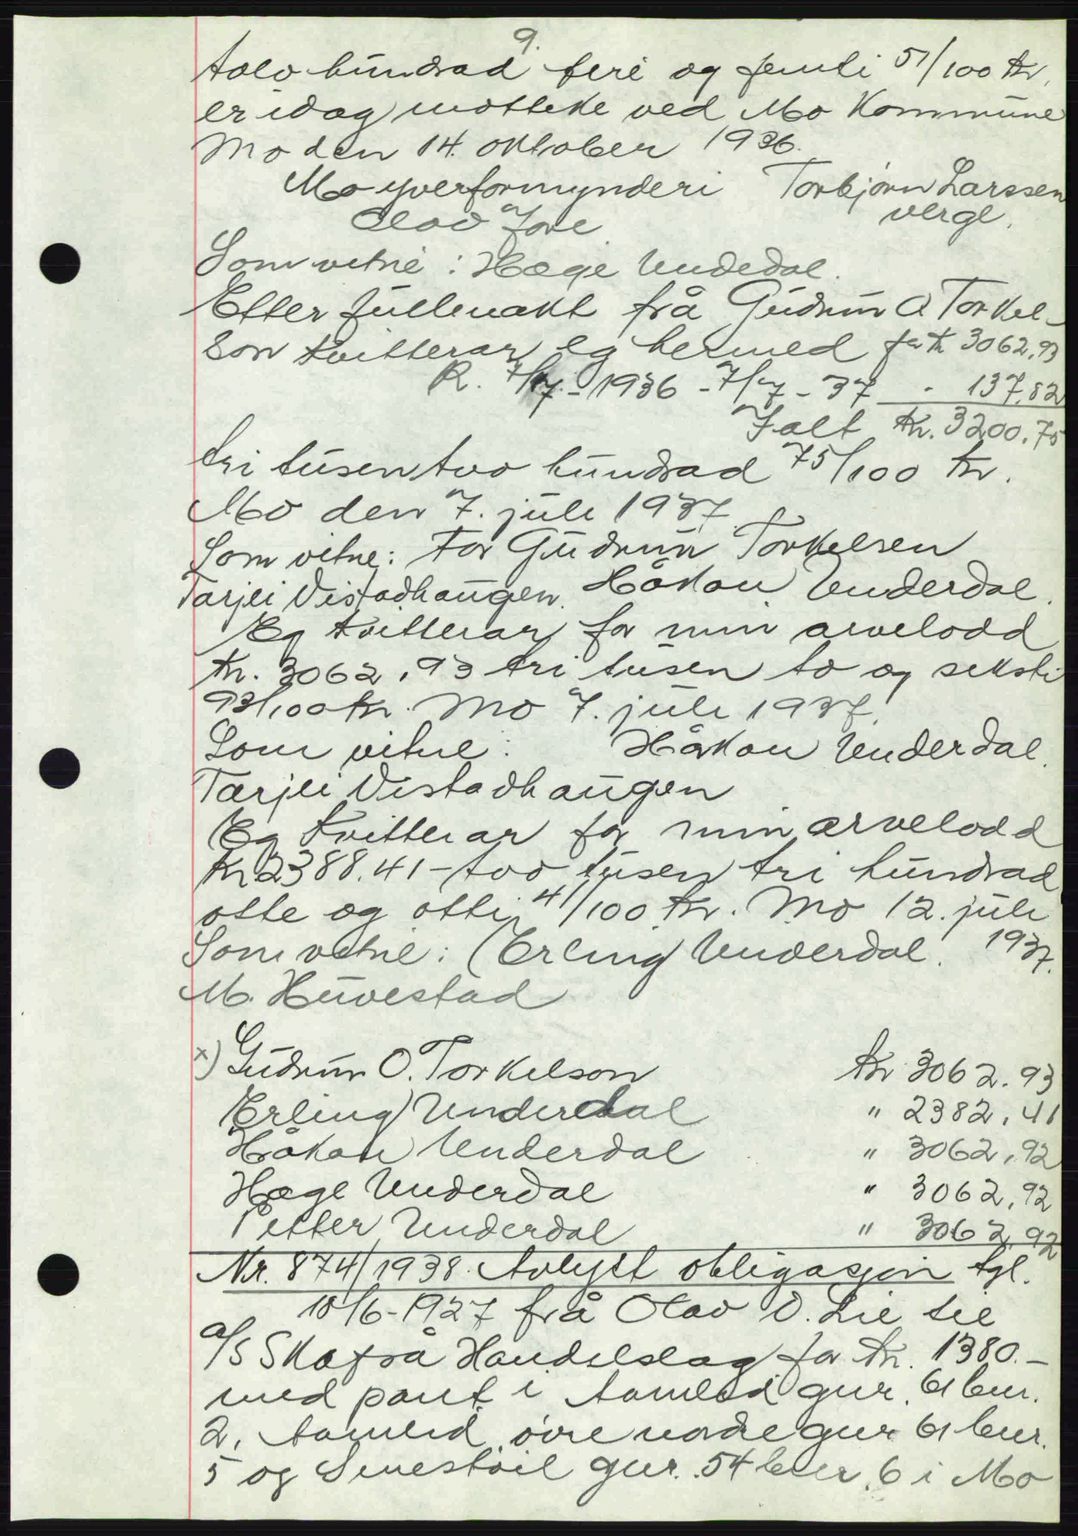 9.
tolv hundrad firi og femti 51/100 kr.
er idag motteke ved Mo Kommune
Mo den 14. oktober 1936.
Mo yverformynderi Torbjørn Larssen
Olav Jore verge.
Som vitne: Hæge Underdal.
Etter fullmakt frå Gudrun O Torkel-
son kvitterar eg hermed for kr 3062,93
R. 7/7-1936 - 7/7-37 - 137,82
Ialt kr. 3200,75
tri tusen tvo hundrad 75/100 kr.
Mo den 7. juli 1937
Som vitne: For Gudrun Torkelsen
Tarjei Vistadhaugen. Håkon Underdal.
Eg kvitterar for min arvelodd
kr. 3062,93 tri tusen to og seksti
93/100 kr. Mo 7. juli 1937.
Som vitne: Håkon Underdal.
Tarjei Vistadhaugen
Eg kvitterar for min arvelodd
kr 2388.41 - tvo tusen tri hundrad
otte og otti 41/100 kr. Mo 12. juli
Som vitne: Erling Underdal. 1937.
M. Huvestad
x) Gudrun O. Torkelson kr 3062.93
Erling Underdal " 2382,41
Håkon Underdal " 3062,92
Hæge Underdal " 3062,92
Petter Underdal " 3062,92
Nr. 874/1938. Avlyst obligasjon tgl.
10/6-1927 frå Olav O. Lie til
a/s Skafså Handelslag for kr. 1380.-
med pant i gnr. 61 bnr.
2, øvre nordre gnr 61 bnr.
5 og gnr. 54 bnr. 6 i Mo